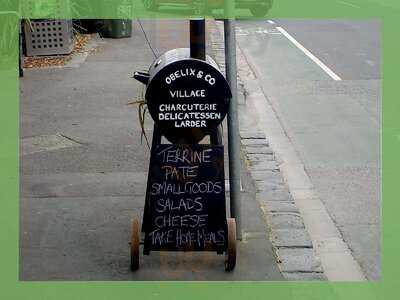 OBELIX & CO
VILLAGE
CHARCUTERIE
DELICATESSEN
LARDER
TERRINE
PATE
SMALLGOODS
SALADS
CHEESE
TAKE HOME MEALS